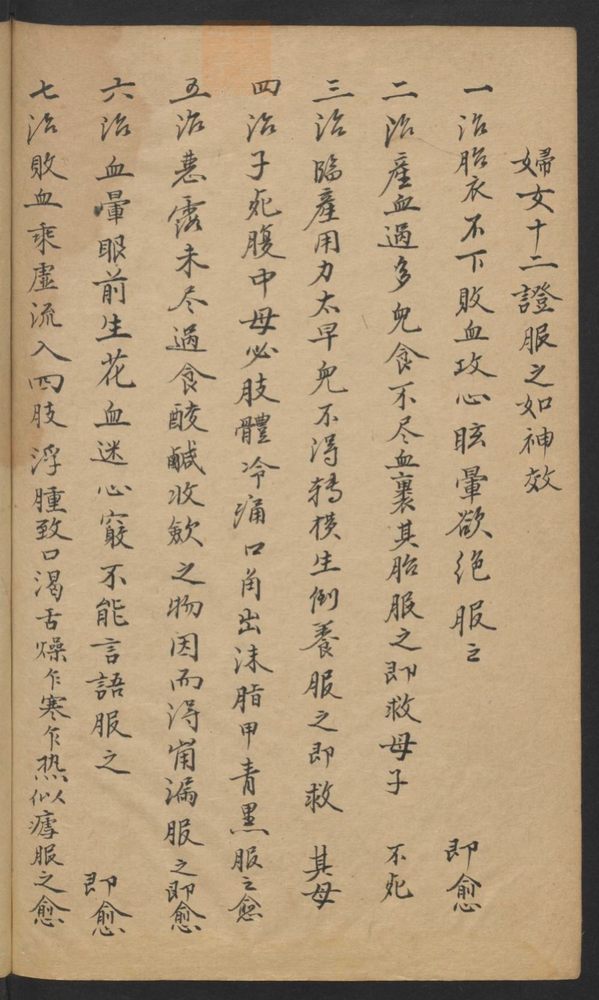 婦女十二證服之如神效
一治胎衣不下敗血攻心眩暈欲絶服之　即愈
二治產血過多兒食不尽血裹其胎服之即救母子　不死
三治臨產用力太早兒不淂轉橫生倒養服之即救　其母
四治子死腹中母必肢體冷痛口角出沫脂甲青黑服之愈
五治惡露未尽過食酸鹹收歛之物因而淂崩漏服之即愈
六治血暈眼前生花血迷心竅不能言語服之　即愈
七治敗血乘虛流入四肢浮腫致口渴舌燥乍寒乍热似瘧服之愈